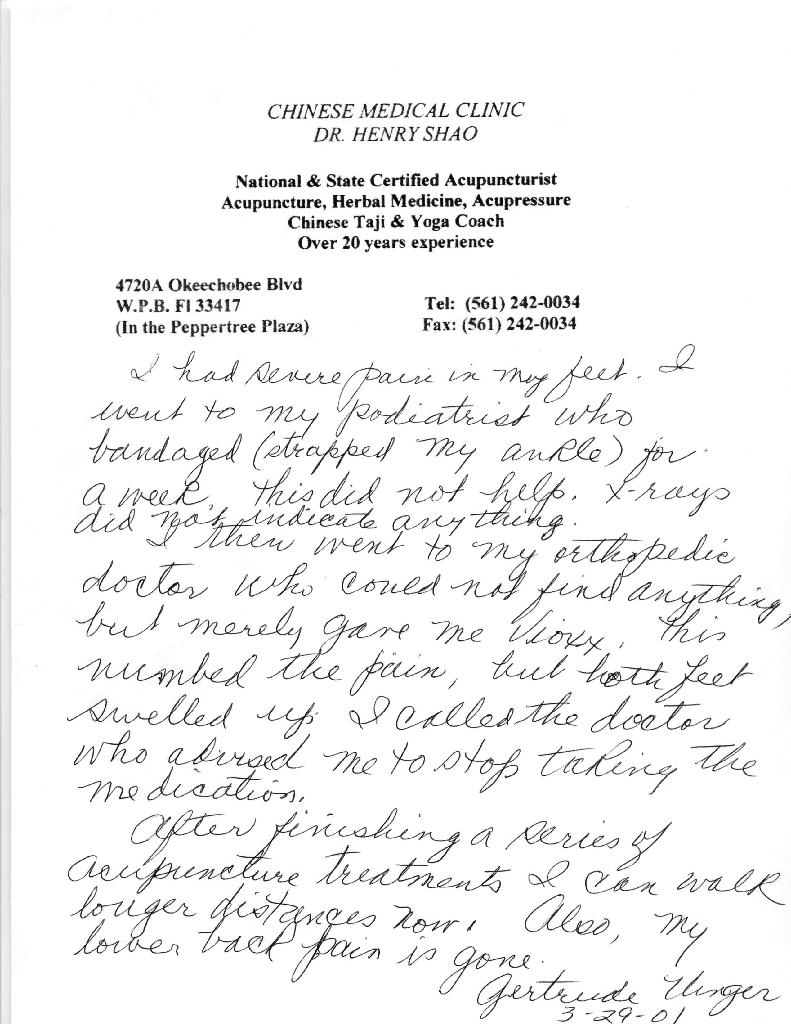 CHINESE MEDICAL CLINIC
DR. HENRY SHAO
National & State Certified Acupuncturist
Acupuncture, Herbal Medicine, Acupressure
Chinese Taji & Yoga Coach
Over 20 years experience
4720A Okeechobee Blvd
W.P.B. Fl 33417
(In the Peppertree Plaza)
Tel: (561) 242-0034
Fax: (561) 242-0034
I had severe pain in my feet. I
went to my podiatrist who
bandaged (strapped my ankle) for
a week. This did not help. X-rays
did not indicate anything.
I then went to my orthopedic
doctor who could not find anything,
but merely gave me Vioxx. This
numbed the pain, but both feet
swelled up. I called the doctor
who advised me to stop taking the
medication.
After finishing a series of
acupuncture treatments I can walk
longer distances now. Also, my
lower back pain is gone.
Gertrude Unger
3-29-01